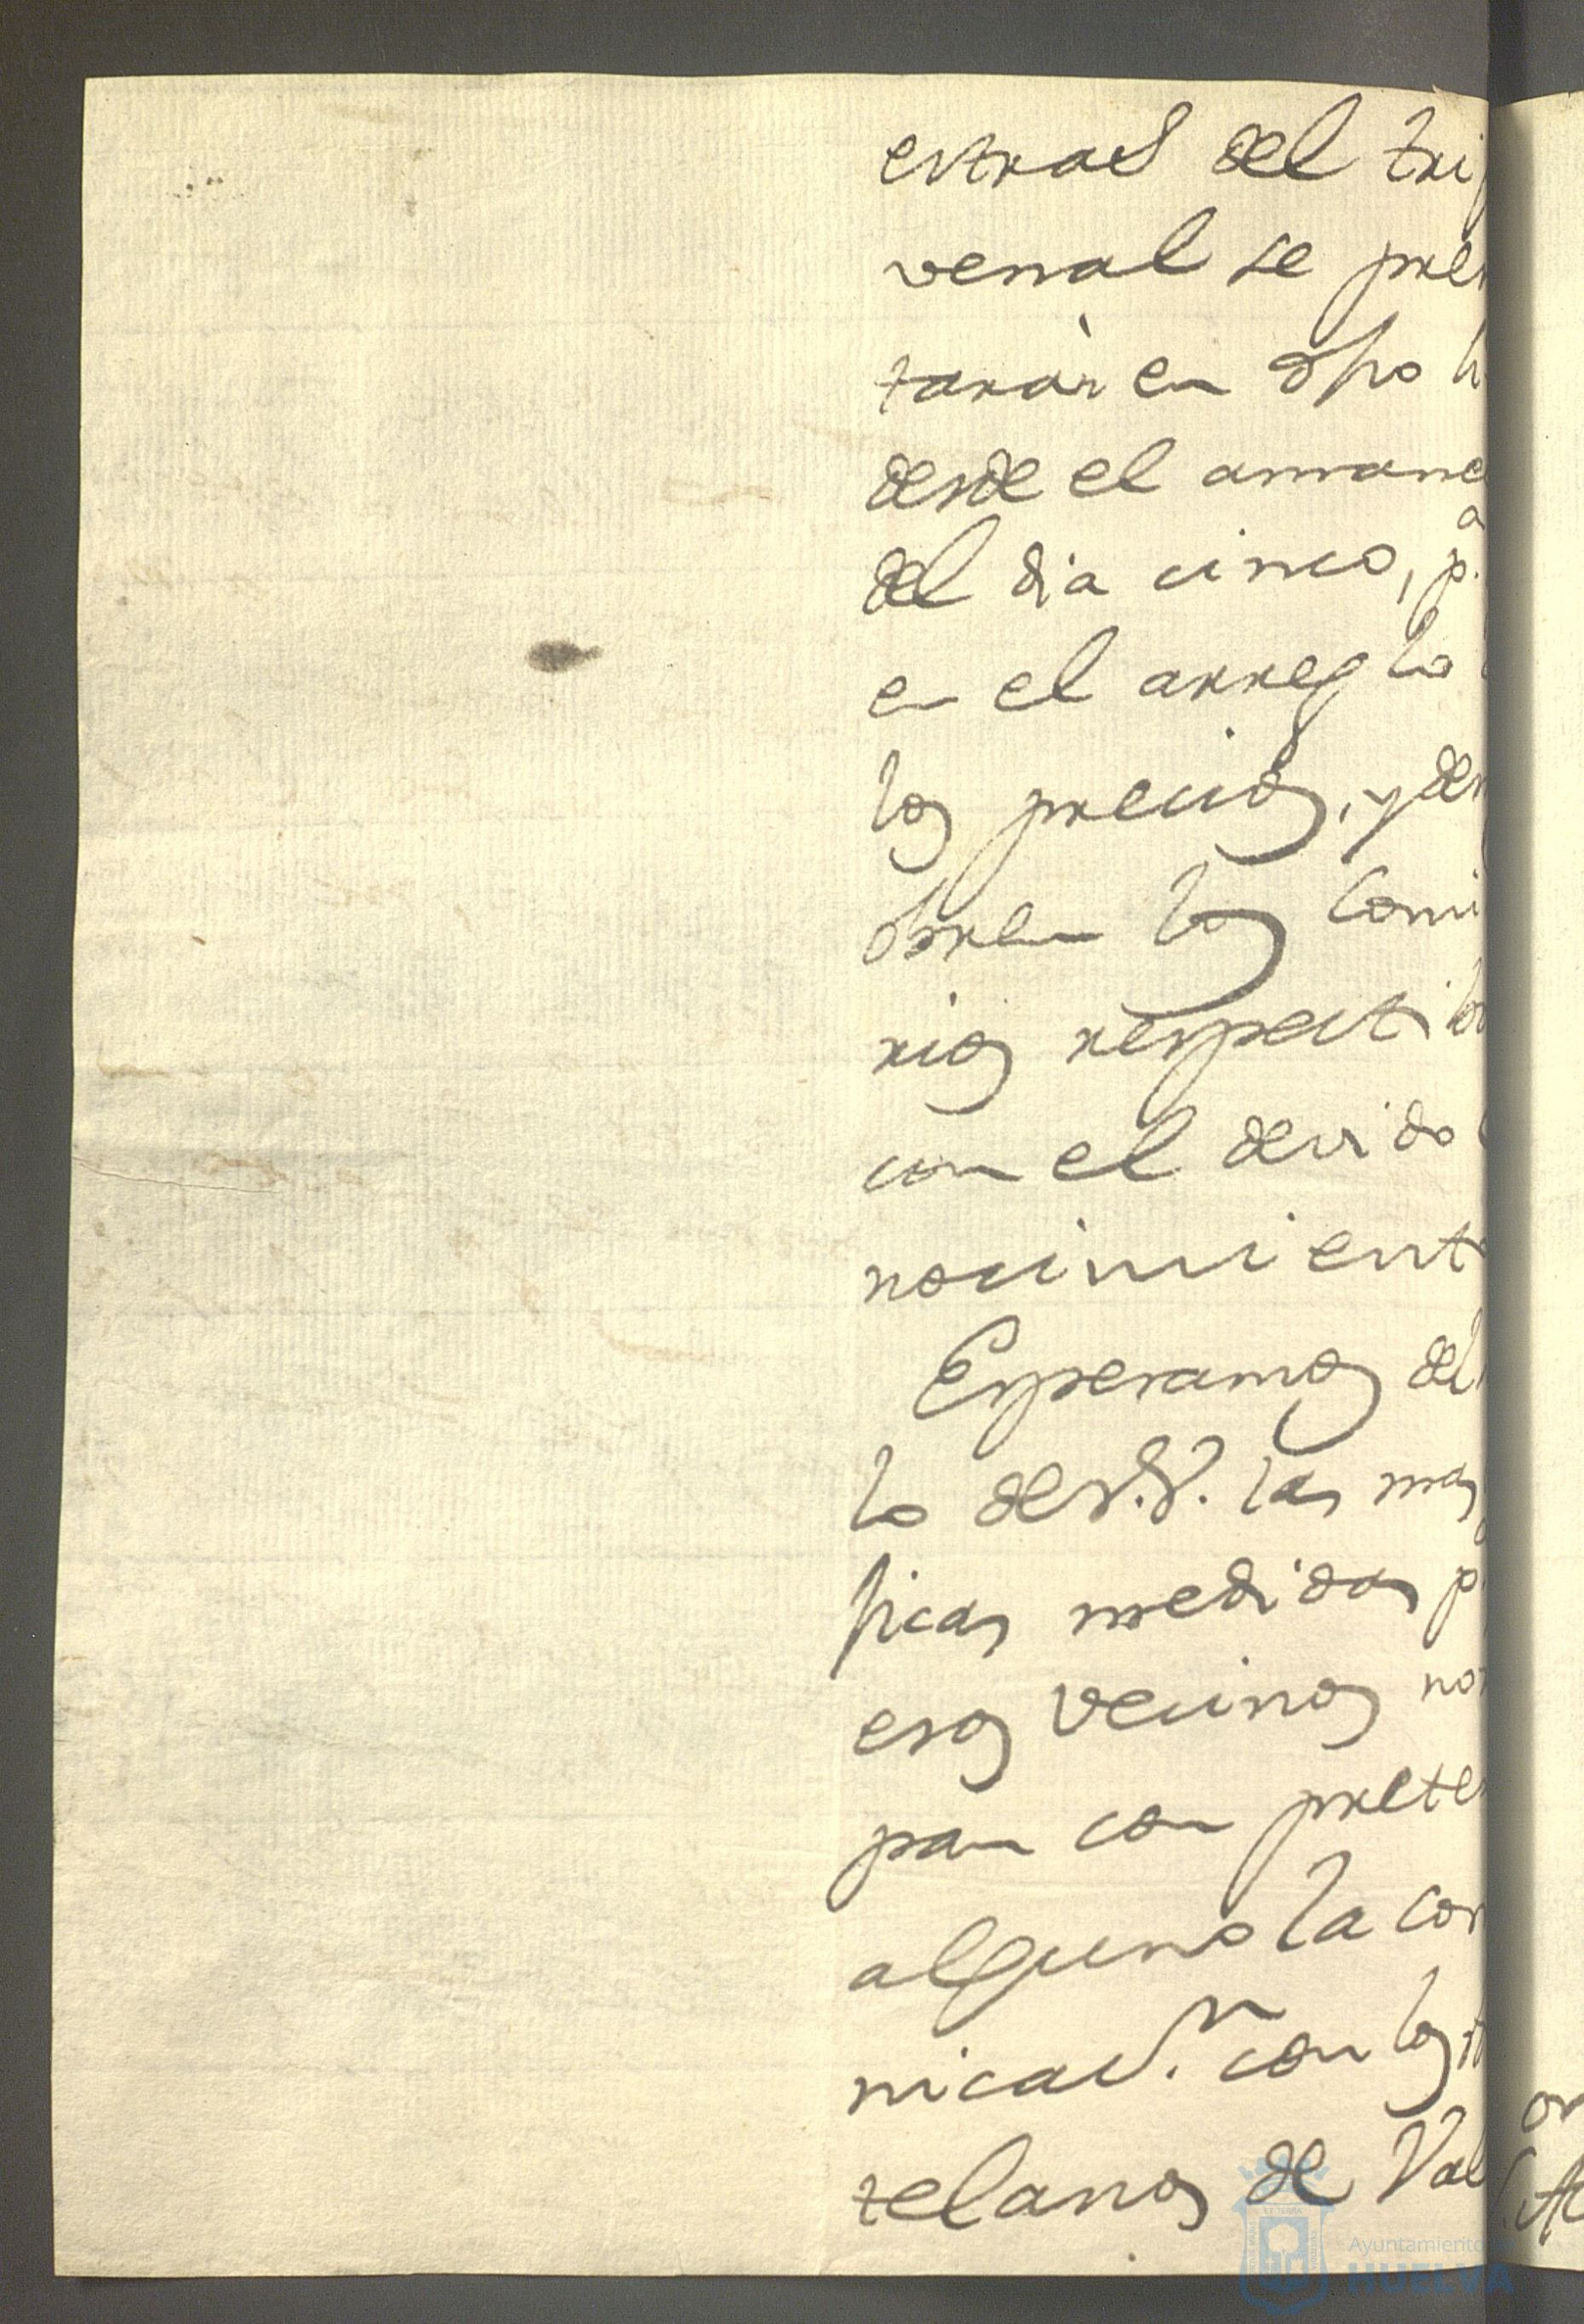 estras del tri
venal se pres
taràn en dho h
desde el amane
del dia cinco, p.a
en el arreglo
los precios, y den
obren los Comi
rios respectibo
con el devido
nocimiento
Esperamos del
lo de V.S. las mas
ficas medidas p
esos vecinos no
pan con prete
alguno la com
nicac.n con los
telanos de Val
Ayuntamiento de
HUELVA